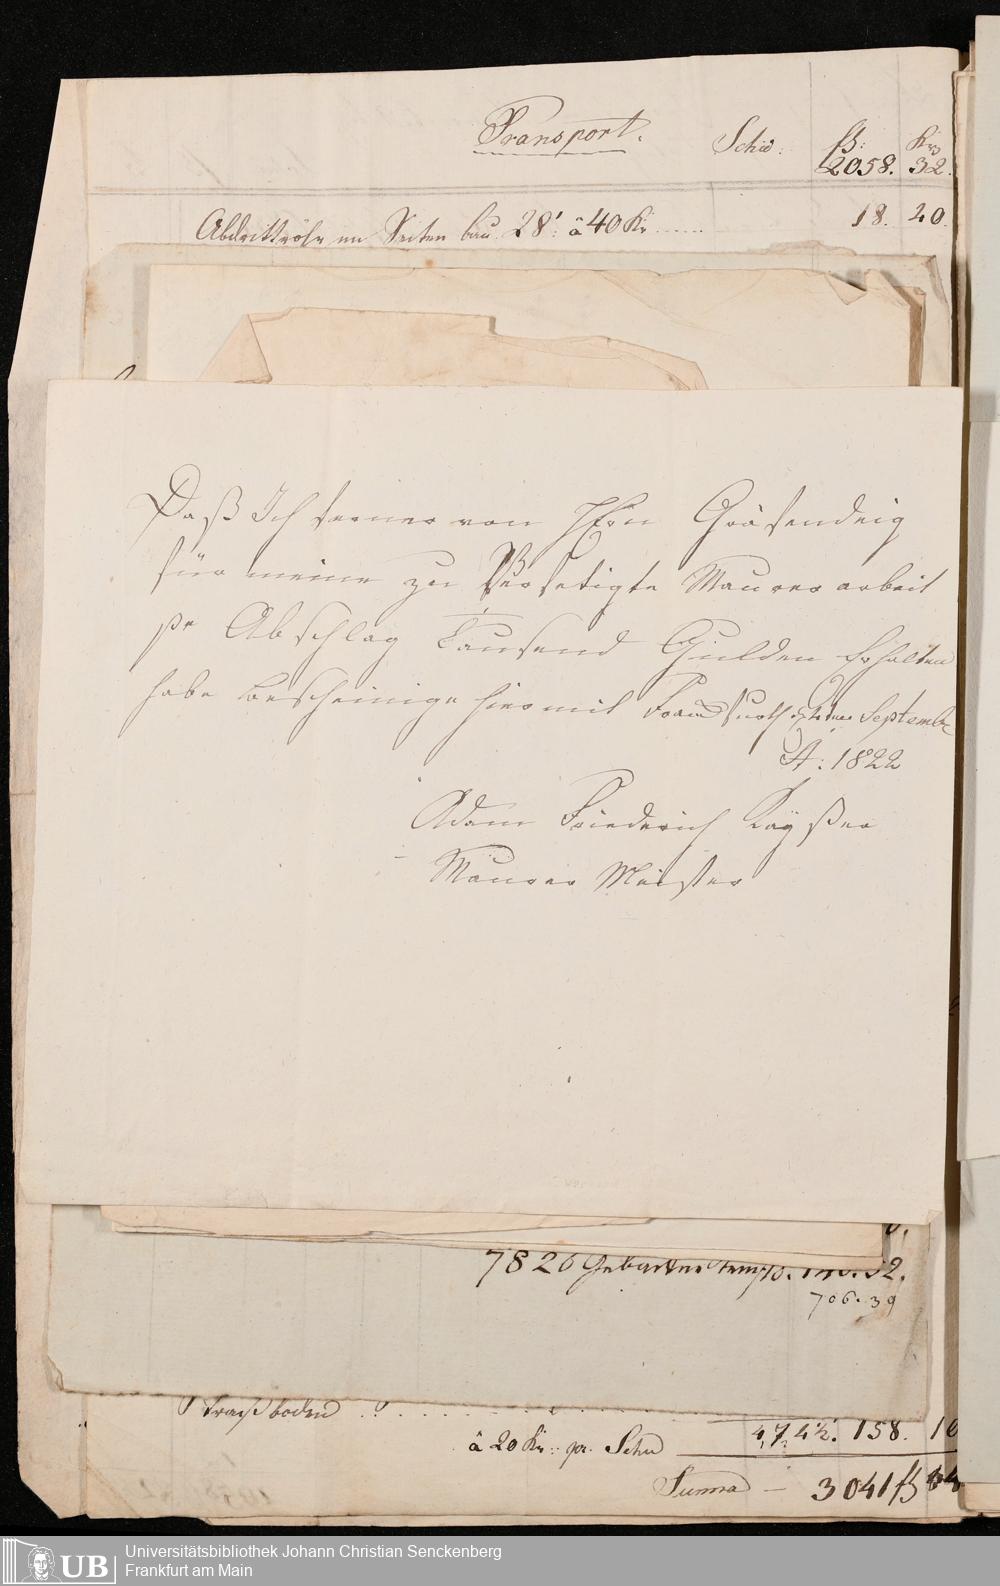 Transport. Schu fl: Kr
2058. 32.
Abdrittröhr im Seiten bau. 28' â 40 Kr...... 18. 20.
Daß Ich ferner von HErn Gräfendeig
für meine zu Verfetigte Maurer arbeit
pr Abschlag Tausend Gulden Erhalten
habe bescheinige hiermit Franckfurth Septembr
A: 1822
Adam Friederich Kayßer
Maurer Meister
7826 Gebackne
706.39
boden
â 20 Kr: pr. Schu 4,74½. 158. 10
Summa — 3041 fl 44
UB
Universitätsbibliothek Johann Christian Senckenberg
Frankfurt am Main